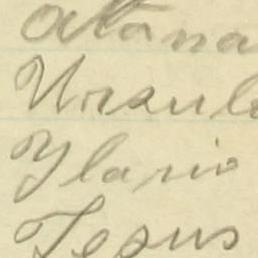 atana
Ursul
Ylario
Jesus